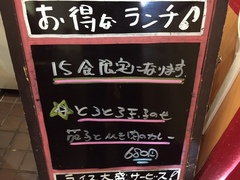 お得なランチ♪
15食限定になります
☆とろとろ玉子のせ
筍とひき肉のカレー
680円
ライス大盛サービス♪